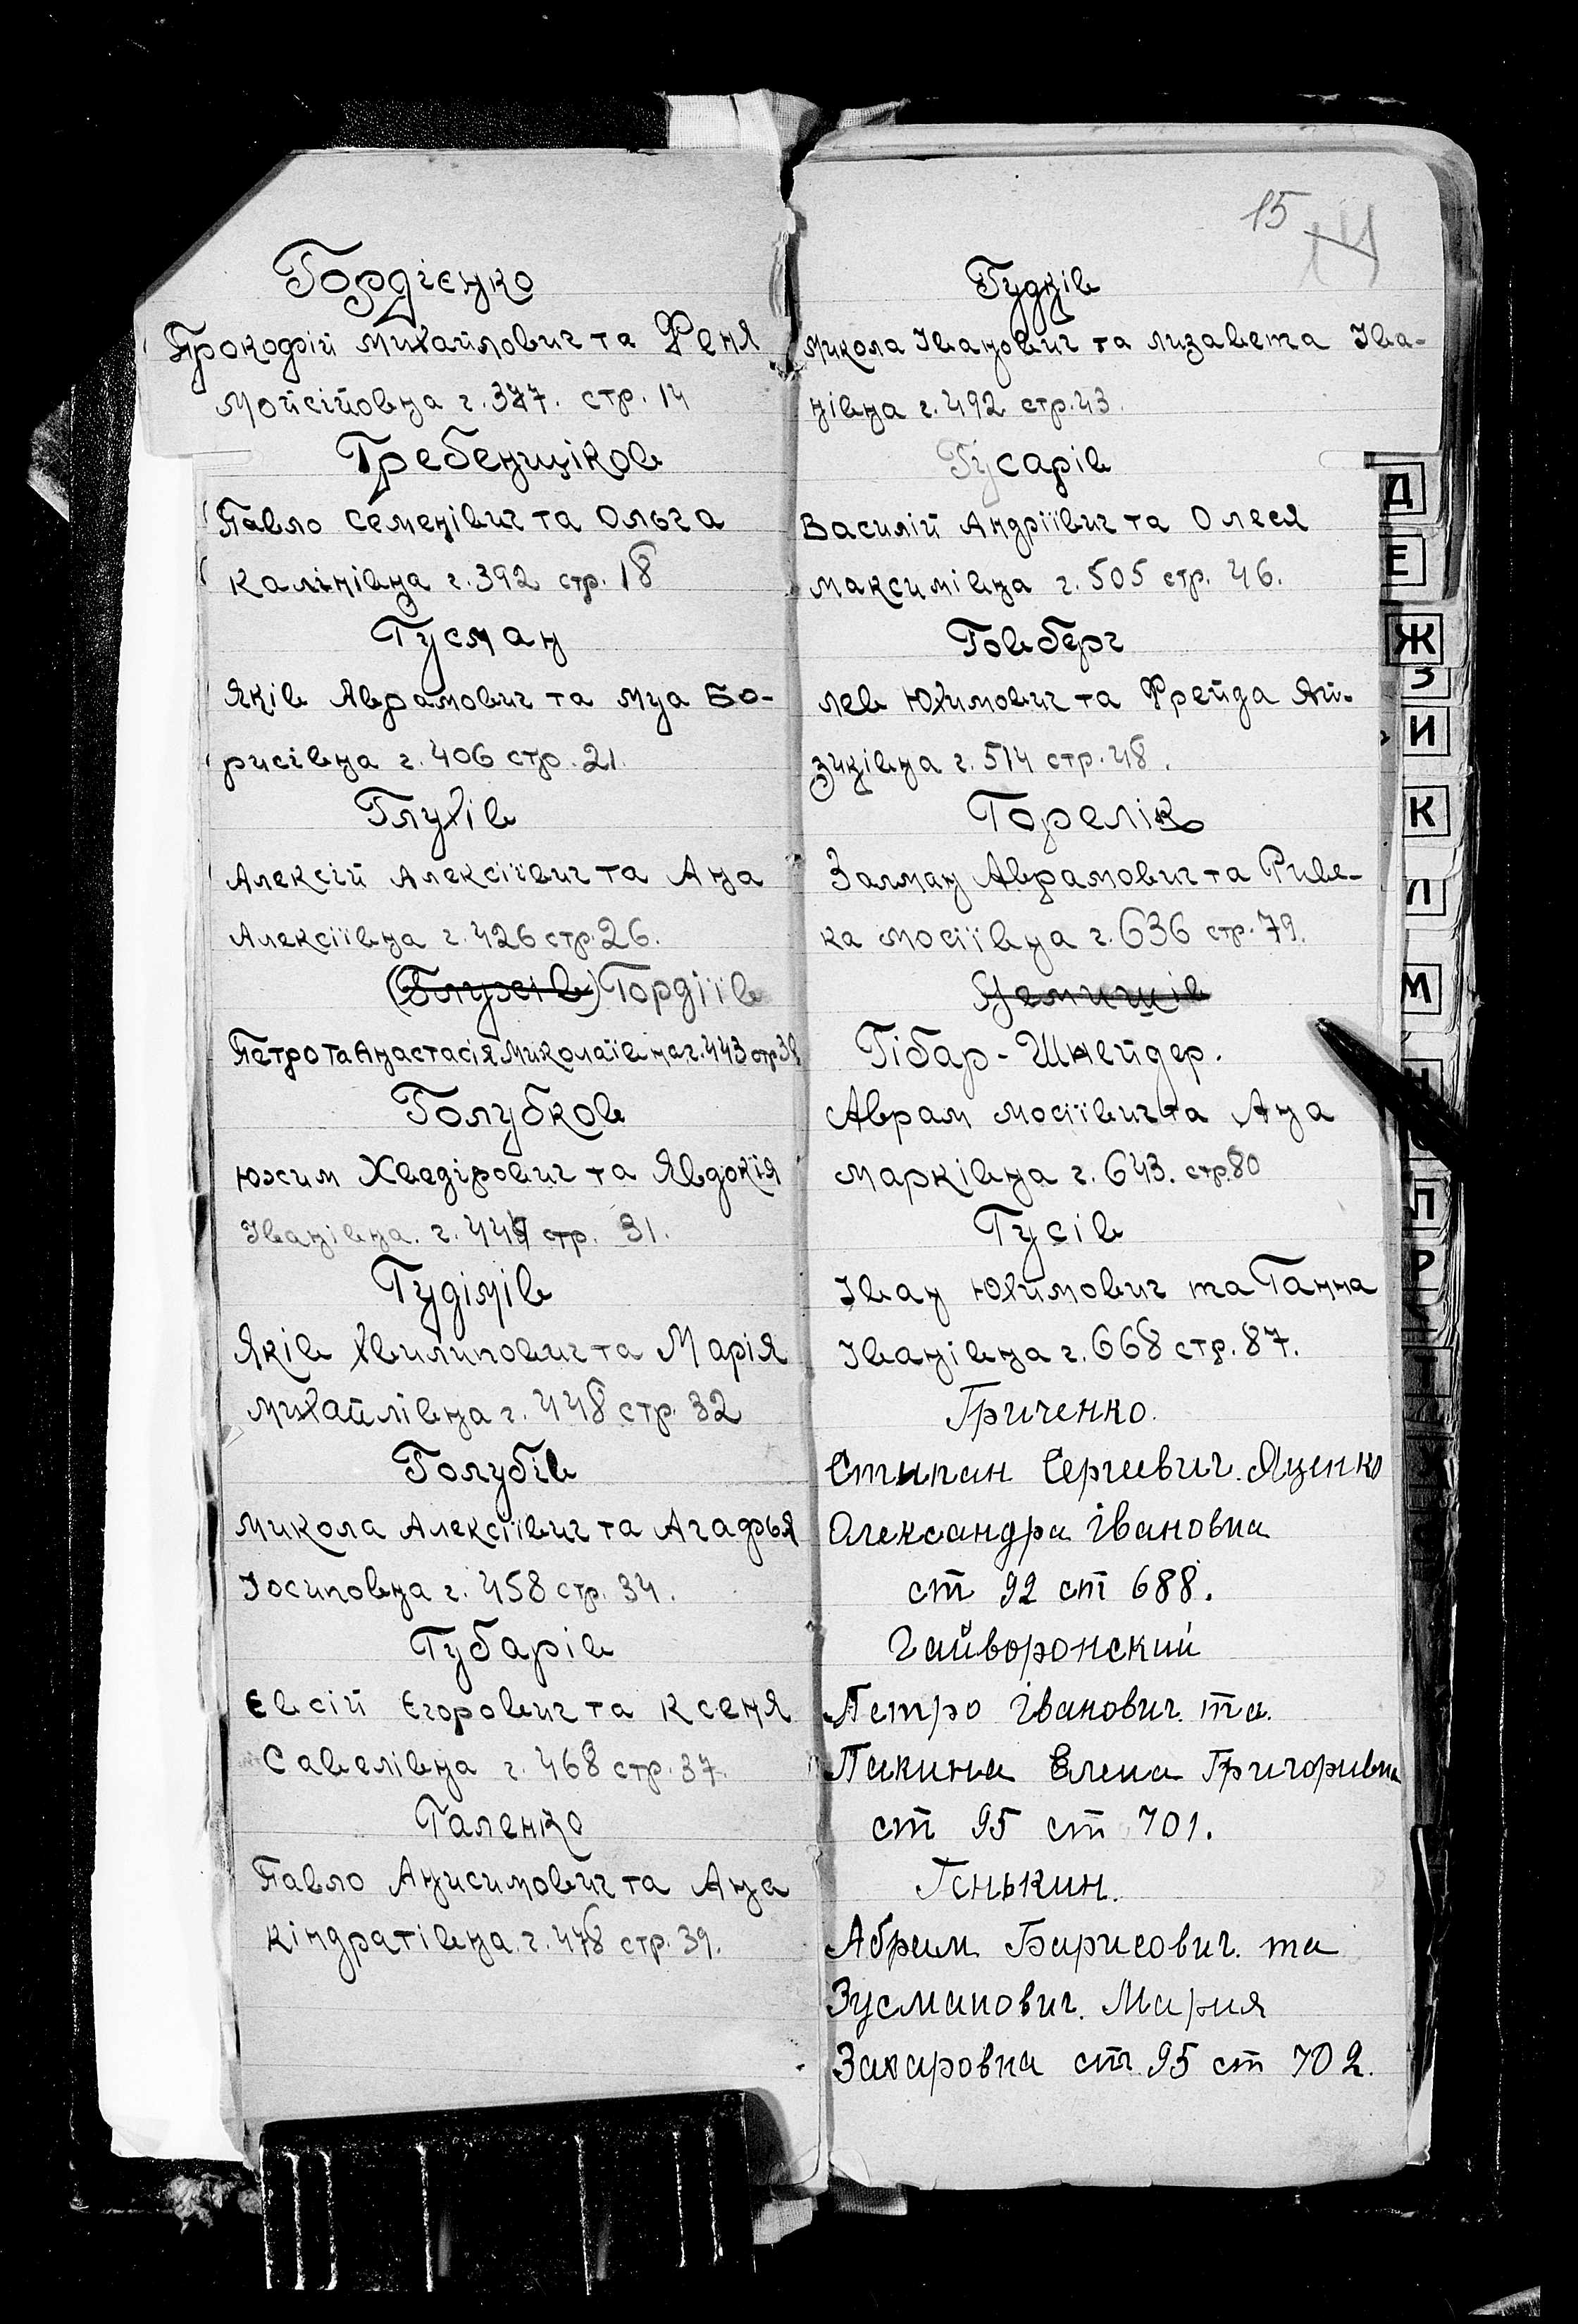 Гордієнко
Прокофій Михайлович та Феня
Мойсійовна г. 377. стр. 14
Гребенщіков
Павло Семенівич та Ольга
Калінівна г. 392 стр. 18
Гусман
Яків Аврамович та Муа Бо-
рисівна г. 406 стр. 21.
Глухів
Алексій Алексіївич та Ана
Алексіївна г. 426 стр. 26.
Гордіїв
Петро та Анастасія Миколаївна г. 443 стр
Голубков
Юхим Хведірович та Явдокія
Іванівна. г. стр. 31.
Гудімів
Яків Хвилипович та Марія
Михайлівна г. 448 стр. 32
Голубів
Микола Алексіївич та Агафья
Іосиповна г. 458 стр. 34.
Губарів
Євсій Єгорович та Ксеня
Савелівна г. 468 стр. 37.
Галенко
Павло Анисимович та Ана
Кіндратівна. г. 478 стр. 39.
15 14
Гудків
Микола Іванович та Лизавета Іва-
нівна г. 492 стр. 43.
Гусарів
Василій Андріївич та Олеся
Максимівна г. 505 стр. 46.
Говберг
Лев Юхимович та Фрейда Ай-
зиківна г. 514 стр. 48.
Горелік
Залман Аврамович та Риве-
ка Мосіївна г. 636 стр. 79.
Гібар-Шнейдер.
Аврам Мосіївич та Ана
Марківна г. 643. стр. 80
Гусів
Іван Юхимович та Ганна
Іванівна г. 668 стр. 87.
Гриченко.
Стипан Сергиевич. Яценко
Олександра Івановна
ст 92 ст 688.
Гайворонский
Петро Іванович. та.
Пакина Елена Григоривна
ст 95 ст 701.
Генькин.
Абрам Барисович. та
Зусманович. Мария
Захаровна ст. 95 ст 702.
Д
Е
Ж
З
И
К
Л
М
П
Р
Т